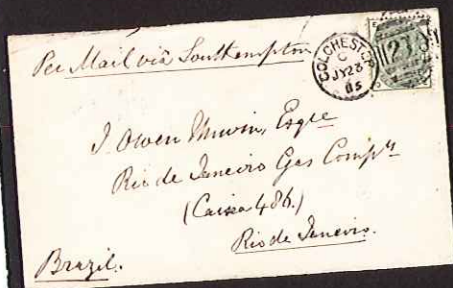 Per Mail via Southampton
COLCHESTER
C
JY 23
85
J. Owen Unwin, Esqre
Rio de Janeiro Gas Compy
(Caixa 486.)
Rio de Janeiro.
Brazil.